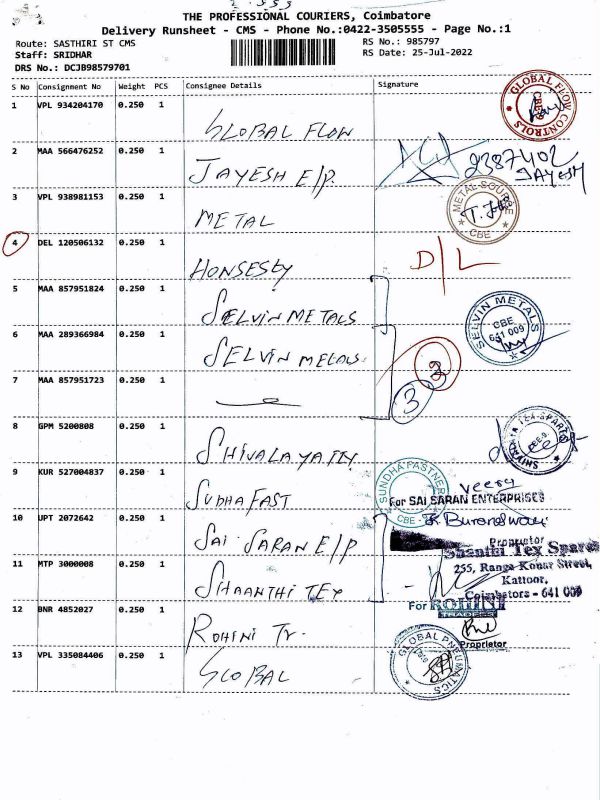 THE PROFESSIONAL COURIERS, Coimbatore
Delivery Runsheet - CMS - Phone No.:0422-3505555 - Page No.:1
Route: SASTHIRI ST CMS
RS No.: 985797
Staff: SRIDHAR
RS Date: 25-Jul-2022
DRS No.: DCJB98579701
S No Consignment No Weight PCS Consignee Details Signature
1 VPL 934204170 0.250 1
GLOBAL FLOW
GLOBAL FLOW CONTROLS CBE-9
2 MAA 566476252 0.250 1
JAYESH E/P.
2387402
JAYESH
3 VPL 938981153 0.250 1
METAL
METAL SOURCE CBE
4 DEL 120506132 0.250 1
D/L
5 MAA 857951824 0.250 1
SELVIN METALS
SELVIN METALS CBE 641 009
6 MAA 289366984 0.250 1
SELVIN METALS
7 MAA 857951723 0.250 1
3
3
8 GPM 5200808 0.250 1
SHIVALAYA TEX
SHIVALAYA TEX-SPARES
9 KUR 527004837 0.250 1
SUDHA FAST
SUNDHA FASTNER CBE
Veera
For SAI SARAN ENTERPRISES
10 UPT 2072642 0.250 1
SAI SARAN E/P
Proprietor
11 MTP 3000008 0.250 1
SHAANTHI TEX
Shanthi Tex Spares
255, Ranga Konar Street,
Kattoor,
Coimbatore - 641 009
12 BNR 4852027 0.250 1
ROHINI Tr.
For ROHINI
TRADERS
Proprietor
13 VPL 335084406 0.250 1
GLOBAL
GLOBAL PNEUMATICS